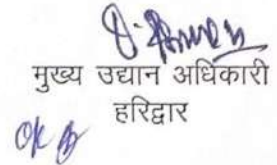 मुख्य उद्यान अधिकारी
हरिद्वार
OK